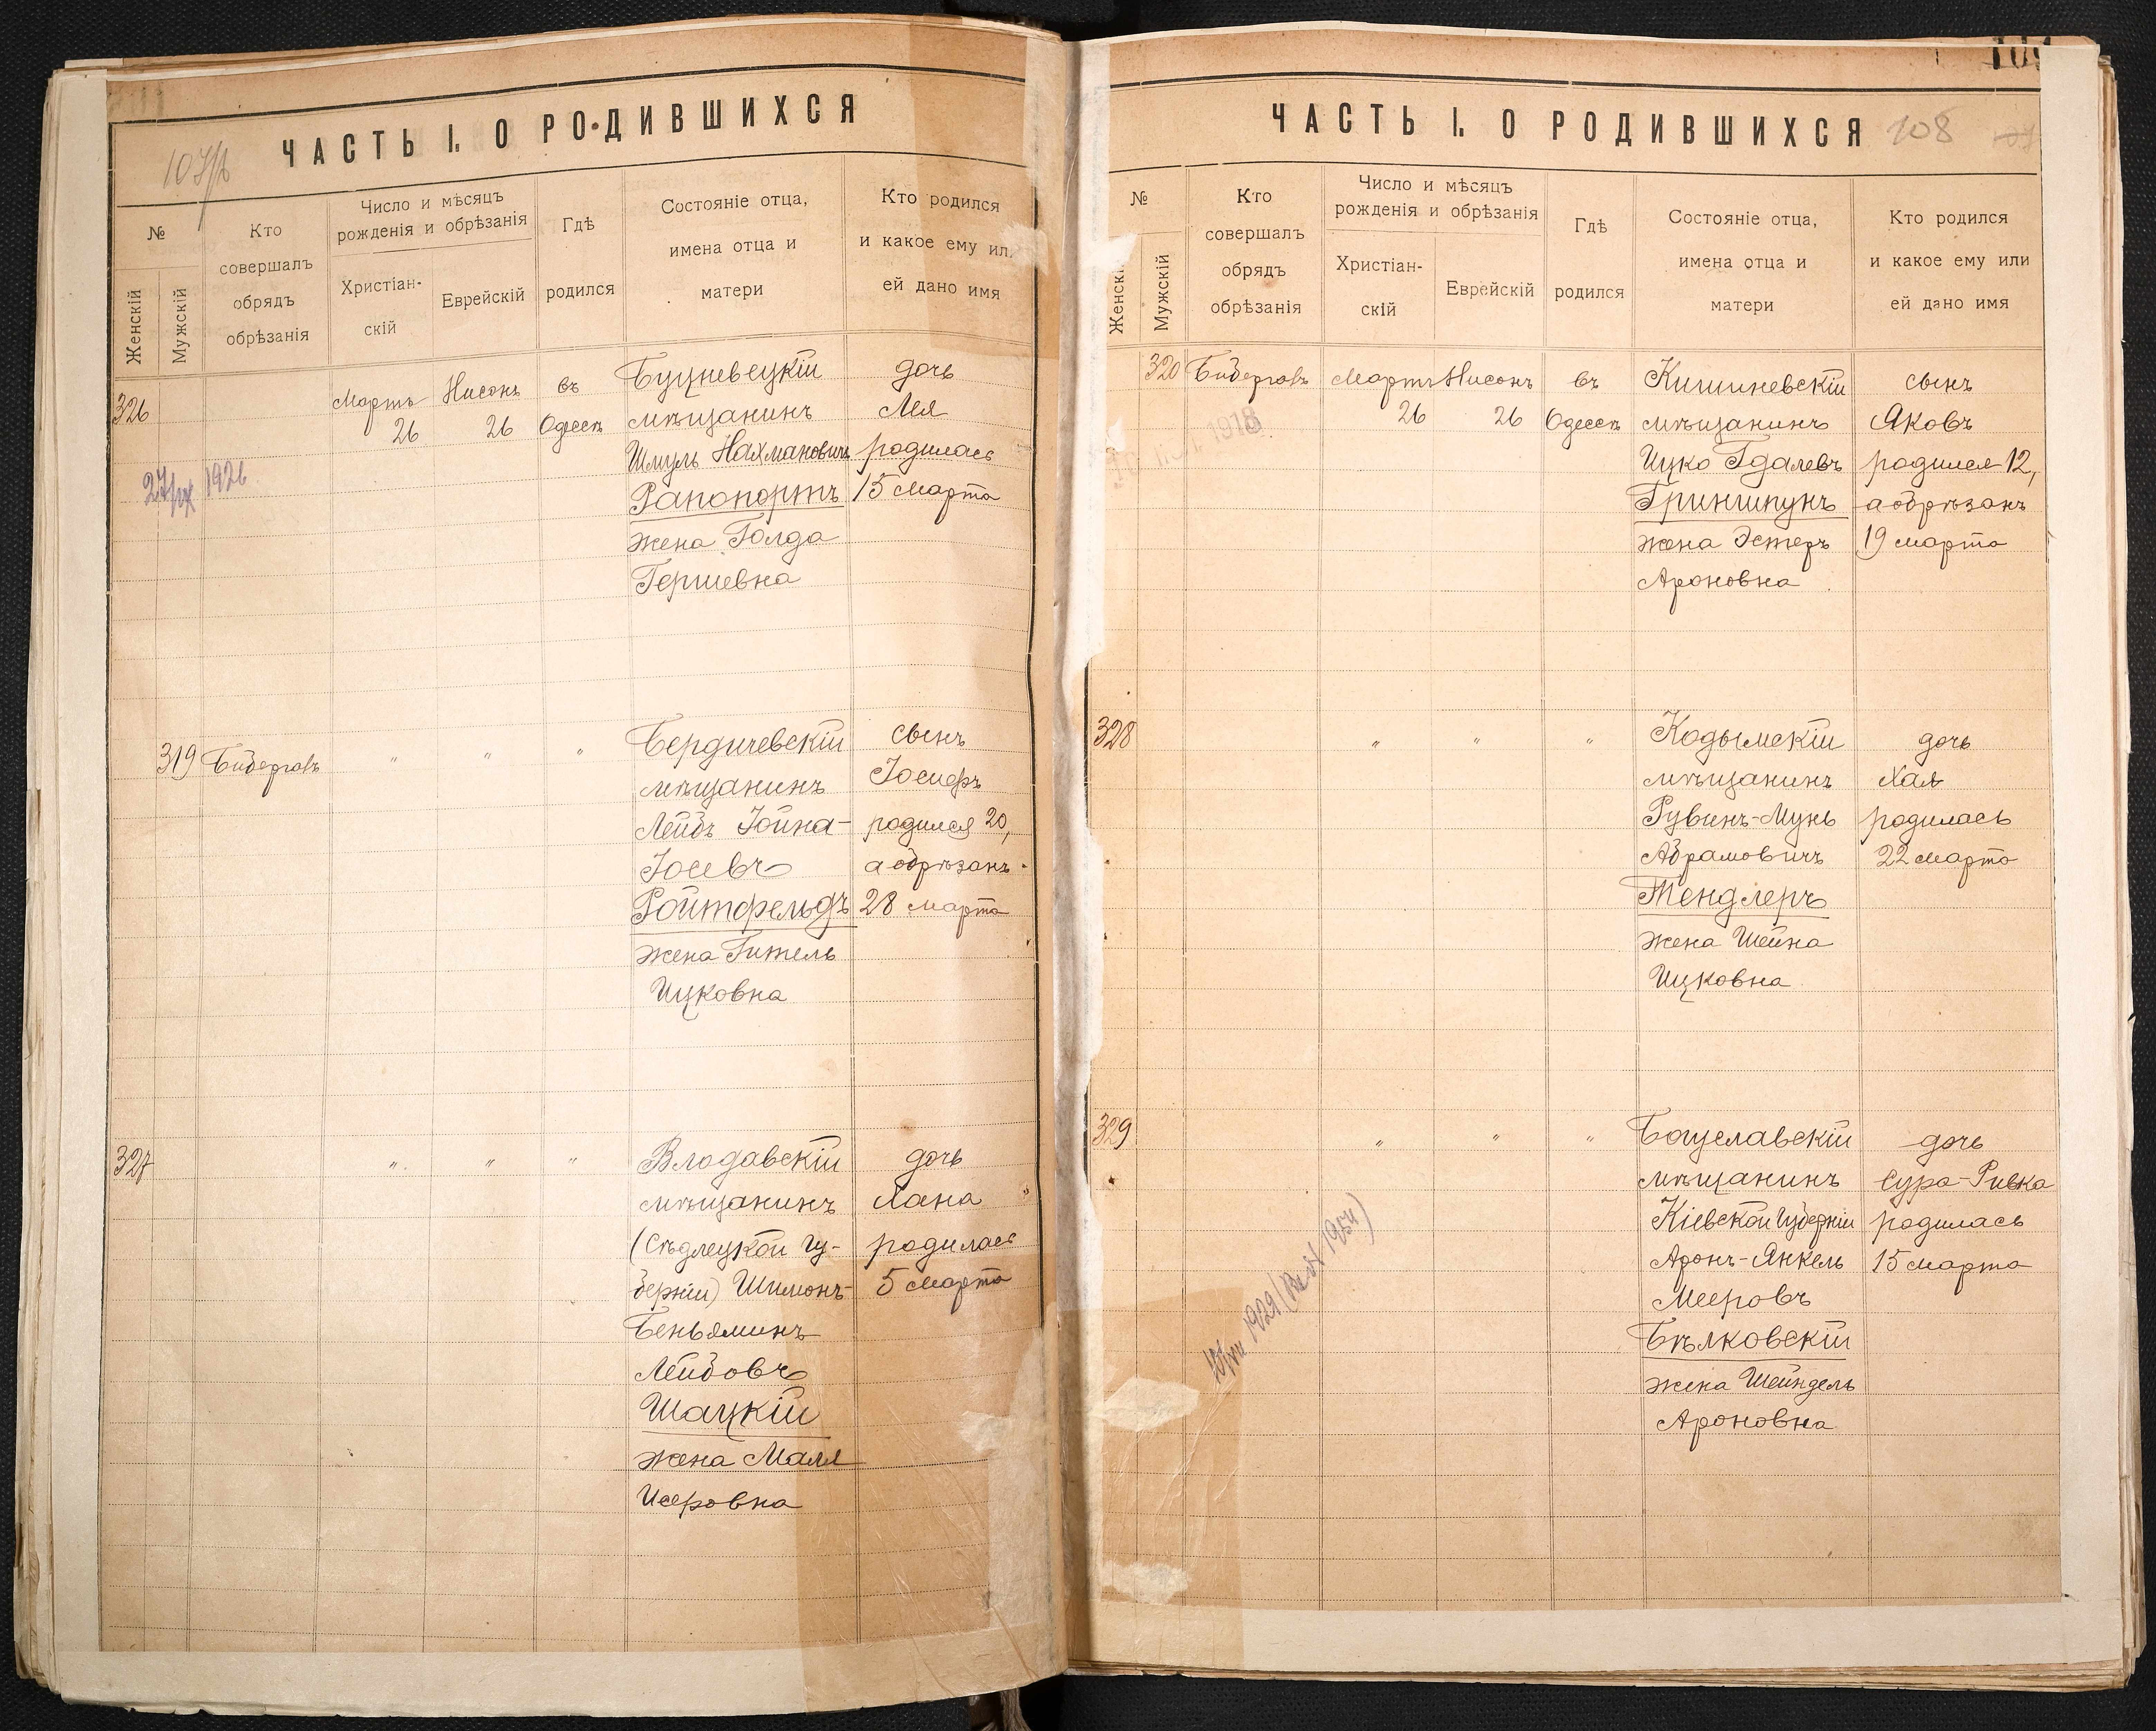 ЧАСТЬ I. О РОДИВШИХСЯ
№
Женскій
Мужскій
Кто
совершалъ
обрядъ
обрѣзанія
Число и мѣсяцъ
рожденія и обрѣзанія
Христіан-
скій
Еврейскій
Гдѣ
родился
Состояніе отца,
имена отца и
матери
Кто родился
и какое ему или
ей дано имя
326
Мартъ
26
Нисонъ
26
въ
Одессѣ
Буцневецкій
мѣщанинъ
Шмуль Нахмановичъ
Рапопортъ
жена Голда
Гершевна
дочь
Лея
родилась
15 марта
1926
319
Бибергалъ
"
"
"
Бердичевскій
мѣщанинъ
Лейбъ Іойна-
Іосевъ
Ройтфельдъ
жена Гитель
Ицковна
сынъ
Іосифъ
родился 20,
а обрѣзанъ
28 марта
327
"
"
"
Влодавскій
мѣщанинъ
(Сѣдлецкой гу-
берніи) Шимонъ-
Беньяминъ
Лейбовъ
Шацкій
жена Маля
Исеровна
дочь
Хана
родилась
5 марта
ЧАСТЬ I. О РОДИВШИХСЯ
108
№
Женскі
Мужскій
Кто
совершалъ
обрядъ
обрѣзанія
Число и мѣсяцъ
рожденія и обрѣзанія
Христіан-
скій
Еврейскій
Гдѣ
родился
Состояніе отца,
имена отца и
матери
Кто родился
и какое ему или
ей дано имя
320
Бибергалъ
Мартъ
26
Нисонъ
26
въ
Одессѣ
Кишиневскій
мѣщанинъ
Ицко Гдалевъ
Гриншпунъ
жена Эстеръ
Ароновна
сынъ
Яковъ
родился 12,
а обрѣзанъ
19 марта
1918
328
"
"
"
Кодымскій
мѣщанинъ
Рувинъ-Мунь
Абрамовичъ
Тендлеръ
жена Шейна
Ицковна
дочь
Хая
родилась
22 марта
329
"
"
"
Богуславскій
мѣщанинъ
Кіевской губерніи
Аронъ-Янкель
Мееровъ
Бѣлковскій
жена Шейндель
Ароновна
дочь
Сура-Ривка
родилась
15 марта
1929